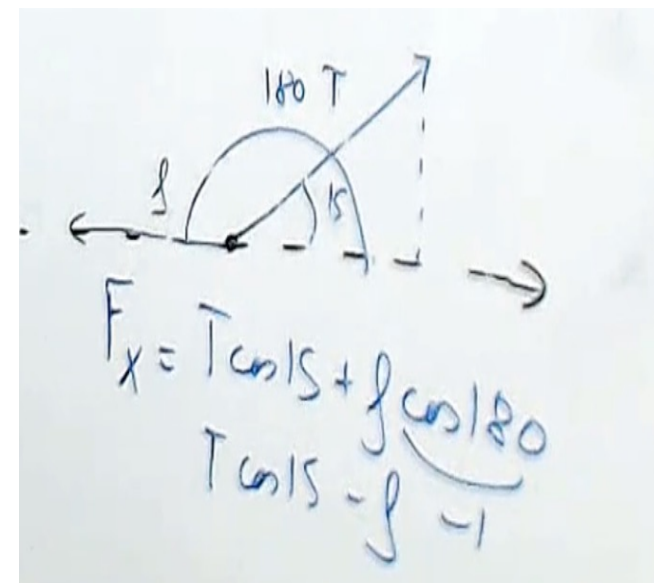 180 T
f
15
Fx = T cos 15 + f cos 180
T cos 15 - f -1